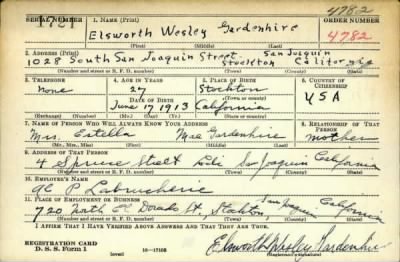 4782
SERIAL NUMBER 1. NAME (Print) ORDER NUMBER
1721 Elsworth Wesley Gardenhire 4782
(First) (Middle) (Last)
2. ADDRESS (Print)
1028 South San Joaquin Street, Stockton San Joaquin California
(Number and street or R. F. D. number) (Town) (County) (State)
3. TELEPHONE 4. AGE IN YEARS 5. PLACE OF BIRTH 6. COUNTRY OF CITIZENSHIP
none 27 Stockton
DATE OF BIRTH (Town or county) U S A
June 17 1913 California
(Exchange) (Number) (Mo.) (Day) (Yr.) (State or country)
7. NAME OF PERSON WHO WILL ALWAYS KNOW YOUR ADDRESS 8. RELATIONSHIP OF THAT PERSON
Mrs. Estella Mae Gardenhire mother
(Mr., Mrs., Miss) (First) (Middle) (Last)
9. ADDRESS OF THAT PERSON
4 Spruce Street Lodi San Joaquin California
(Number and street or R. F. D. number) (Town) (County) (State)
10. EMPLOYER'S NAME
P
11. PLACE OF EMPLOYMENT OR BUSINESS
720 North El Dorado St., Stockton, San Joaquin California
(Number and street or R. F. D. number) (Town) (County) (State)
I AFFIRM THAT I HAVE VERIFIED ABOVE ANSWERS AND THAT THEY ARE TRUE.
REGISTRATION CARD
D. S. S. Form 1 (over) 16—17105 Elsworth Wesley Gardenhire
(Registrant's signature)